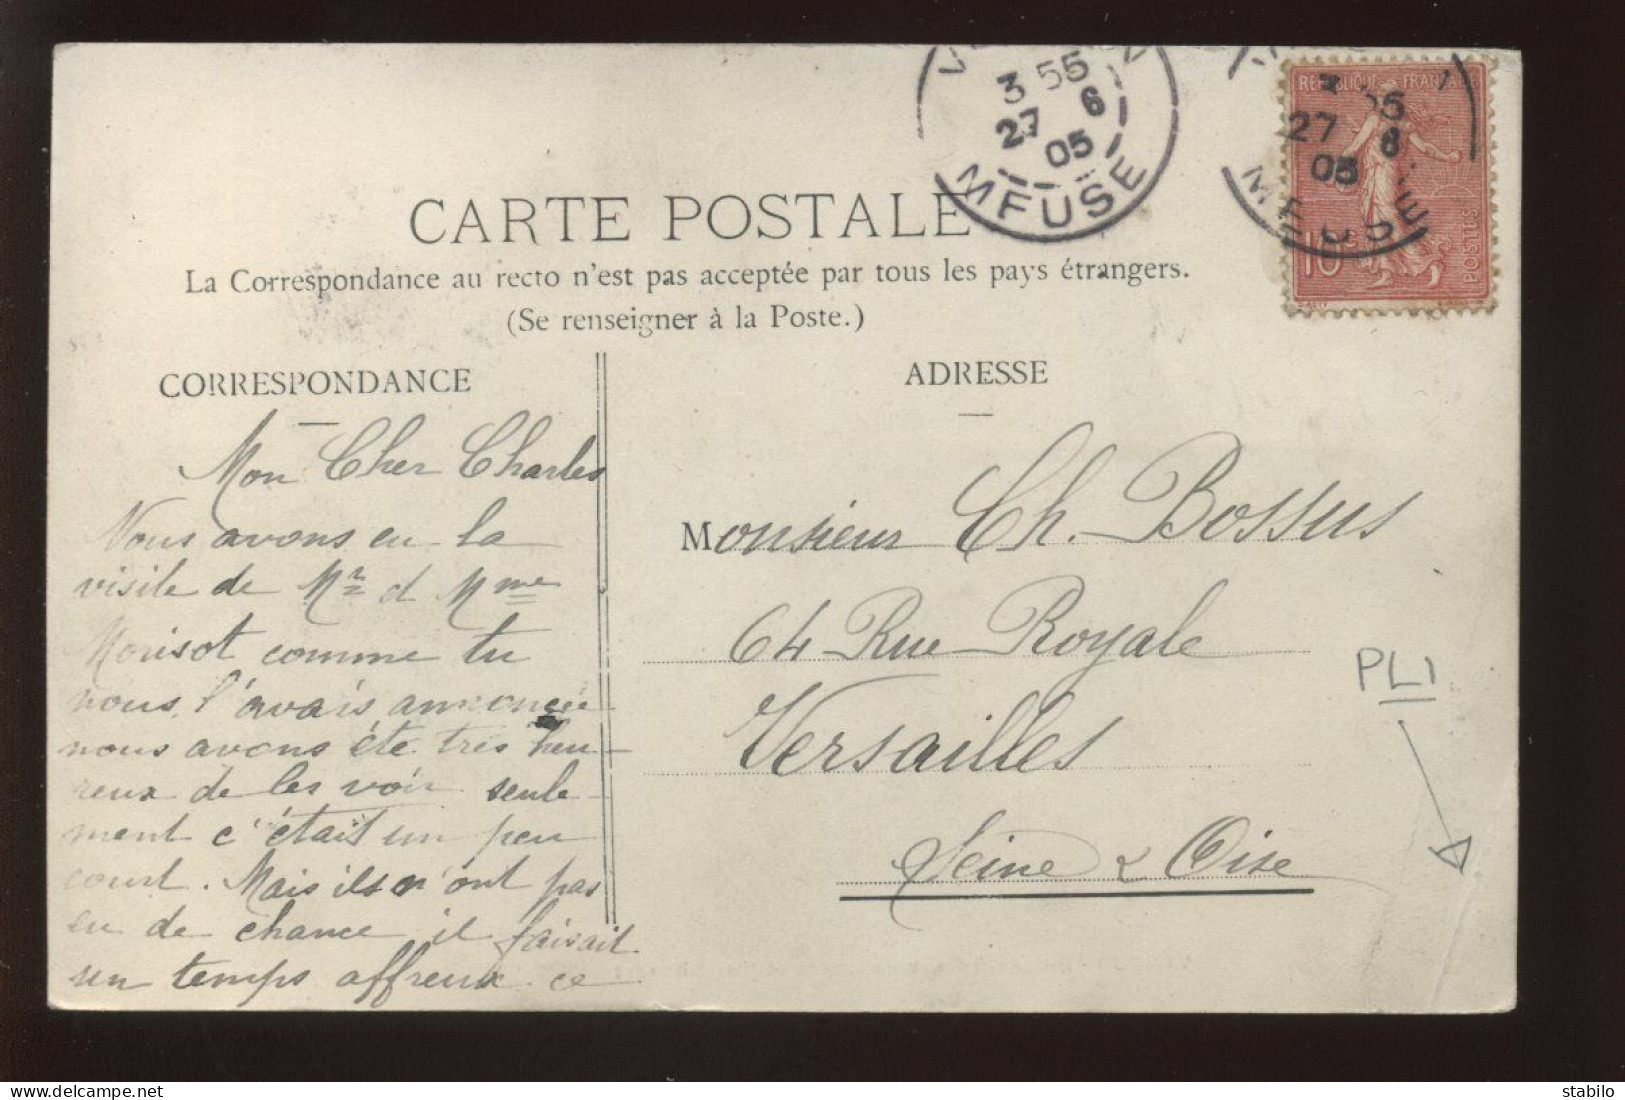 3 55
27 6
05
MEUSE
REPUBLIQUE FRANÇAISE
55
27 6
05
MEUSE
10c
POSTES
CARTE POSTALE
La Correspondance au recto n'est pas acceptée par tous les pays étrangers.
(Se renseigner à la Poste.)
CORRESPONDANCE
Mon Cher Charles
Nous avons eu la
visite de Mr et Mme
Morisot comme tu
nous l'avais annoncée
nous avons été très heu-
reux de les voir seule-
ment c'était un peu
court. Mais ils n'ont pas
eu de chance il faisait
un temps affreux ce
ADRESSE
Monsieur Ch. Bossus
64 Rue Royale
Versailles
Seine & Oise
PLI
stabilo